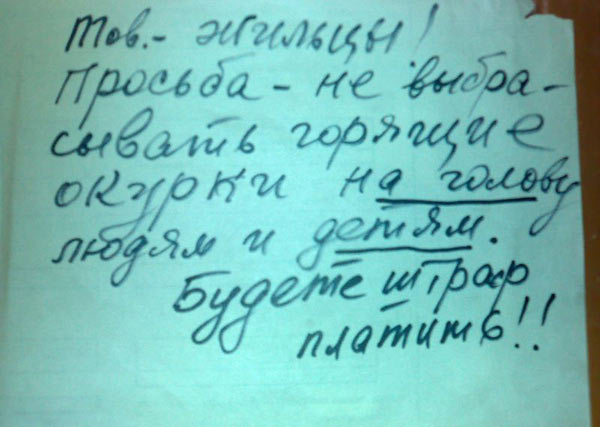 Тов.- жильцы!
Просьба - не выбра-
сывать горящие
окурки на голову
людям и детям.
Будете штраф
платить!!